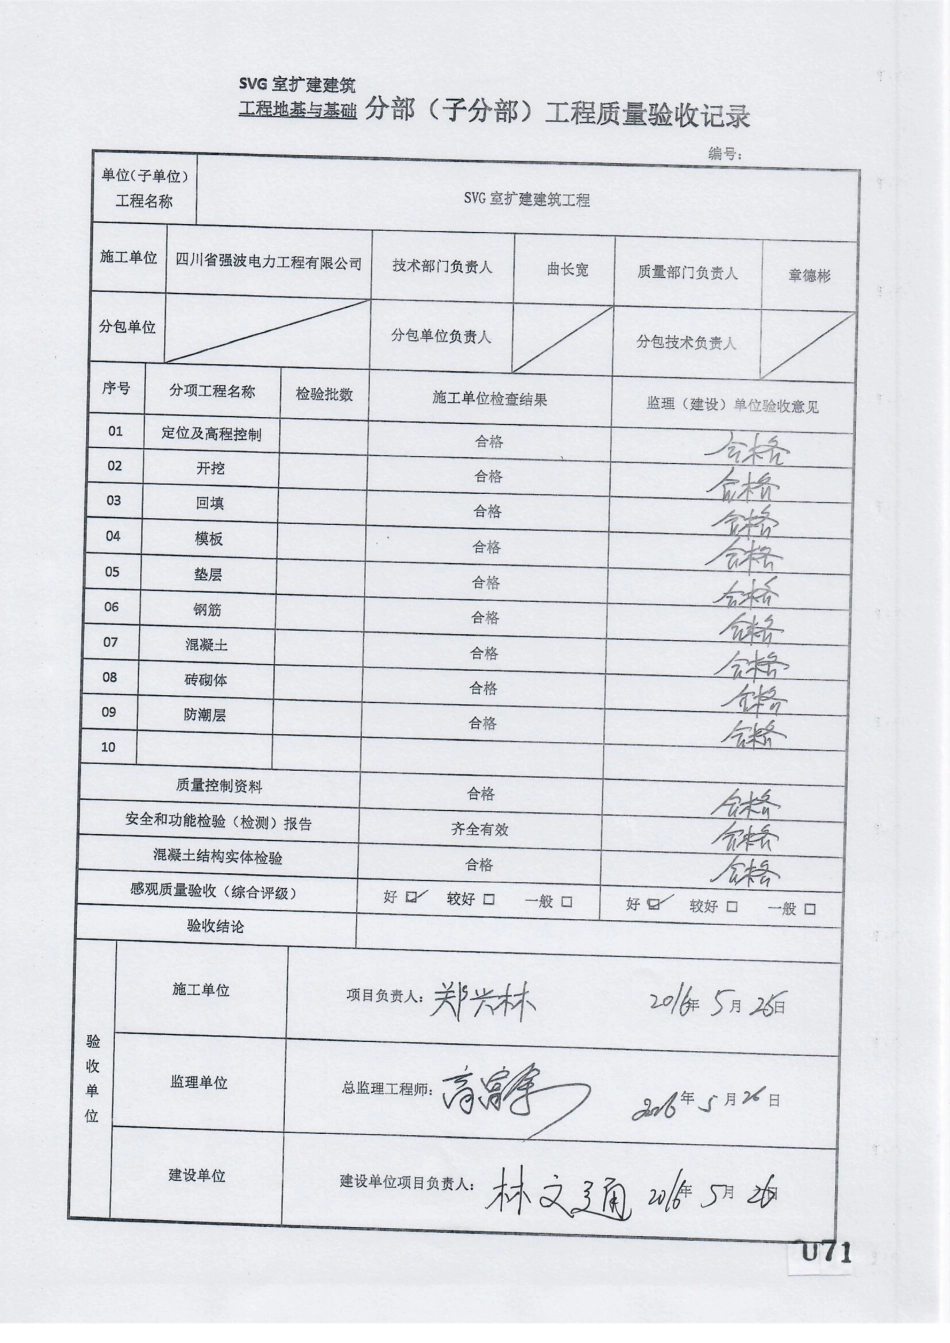 SVG 室扩建建筑
工程地基与基础 分部（子分部）工程质量验收记录
编号：
单位(子单位)
工程名称
SVG 室扩建建筑工程
施工单位 四川省强波电力工程有限公司 技术部门负责人 曲长宽 质量部门负责人 章德彬
分包单位 分包单位负责人 分包技术负责人
序号 分项工程名称 检验批数 施工单位检查结果 监理（建设）单位验收意见
01 定位及高程控制 合格 合格
02 开挖 合格 合格
03 回填 合格 合格
04 模板 合格 合格
05 垫层 合格 合格
06 钢筋 合格 合格
07 混凝土 合格 合格
08 砖砌体 合格 合格
09 防潮层 合格 合格
10
质量控制资料 合格 合格
安全和功能检验（检测）报告 齐全有效 合格
混凝土结构实体检验 合格 合格
感观质量验收（综合评级） 好 ☑ 较好 □ 一般 □ 好 ☑ 较好 □ 一般 □
验收结论
验收单位
施工单位 项目负责人：郑兴林 2016年 5月 25日
监理单位 总监理工程师： 2016年 5月 26日
建设单位 建设单位项目负责人：林文通 2016年 5月 26日
U71